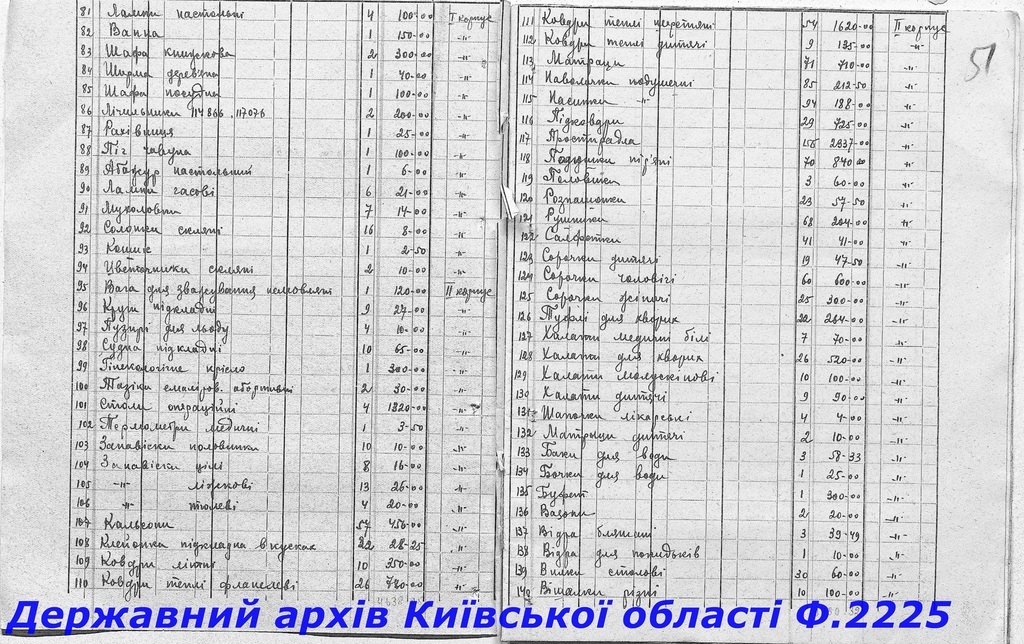 81 Лампи настольні 4 100-00 I корпус
82 Ванна 1 150-00 -"-
83 Шафа книжкова 2 300-00 -"-
84 Ширма деревяна 1 40-00 -"-
85 Шафа посудна 1 100-00 -"-
86 Лічильники 114866, 117076 2 200-00 -"-
87 Раковиниця 1 25-00 -"-
88 Піч чавуна 1 100-00 -"-
89 Абажур настольний 1 6-00 -"-
90 Лампи гасові 6 21-00 -"-
91 Мухоловки 7 14-00 -"-
92 Солонки скляні 16 8-00 -"-
93 Кошик 1 2-50 -"-
94 Цветочники скляні 2 10-00 -"-
95 Вага для зважування немовляти 1 120-00 II корпус
96 Круги підкладні 9 27-00 -"-
97 Пузирі для льоду 4 10-00 -"-
98 Судна підкладні 10 65-00 -"-
99 Гінекологічне крісло 1 300-00 -"-
100 Тазіки емаліров. абортивні 2 30-00 -"-
101 Столи операційні 4 1820-00 -"-
102 Термометри медичні 1 3-50 -"-
103 Занавіски половинки 10 10-00 -"-
104 Занавіски цілі 8 16-00 -"-
105 -"- ліжкові 13 26-00 -"-
106 -"- тюлеві 4 20-00 -"-
107 Кальсони 57 456-00 -"-
108 Клейонка підкладна в кусках 22 28-25 -"-
109 Ковдри літні 10 350-00 -"-
110 Ковдри теплі фланелеві 26 780-00 -"-
51
111 Ковдри теплі шерстяні 54 1620-00 II корпус
112 Ковдри теплі дитячі 9 135-00 -"-
113 Матраци 71 710-00 -"-
114 Наволочки подушечні 85 212-50 -"-
115 Насипки -"- 94 188-00 -"-
116 Підковдри 29 725-00 -"-
117 Простирадла 156 2037-00 -"-
118 Подушки пір'яні 70 840-00 -"-
119 Пеловіки 3 60-00 -"-
120 Розпашонки 23 57-50 -"-
121 Рушники 68 204-00 -"-
122 Салфетки 41 41-00 -"-
123 Сорочки дитячі 19 47-50 -"-
124 Сорочки чоловічі 60 600-00 -"-
125 Сорочки жіночі 25 300-00 -"-
126 Туфлі для хворих 22 264-00 -"-
127 Халати медичні білі 7 70-00 -"-
128 Халати для хворих 26 520-00 -"-
129 Халати молескінові 10 100-00 -"-
130 Халати дитячі 9 90-00 -"-
131 Шапочки лікарські 4 4-00 -"-
132 Матраци дитячі 2 10-00 -"-
133 Баки для води 3 58-33 -"-
134 Бочки для води 1 25-00 -"-
135 Буфет 1 300-00 -"-
136 Вазони 2 20-00 -"-
137 Відра бляшані 3 39-49 -"-
138 Відра для помидьків 1 10-00 -"-
139 Вилки столові 30 60-00 -"-
140 Вішалки різні 10 100-00 -"-
Державний архів Київської області Ф.2225